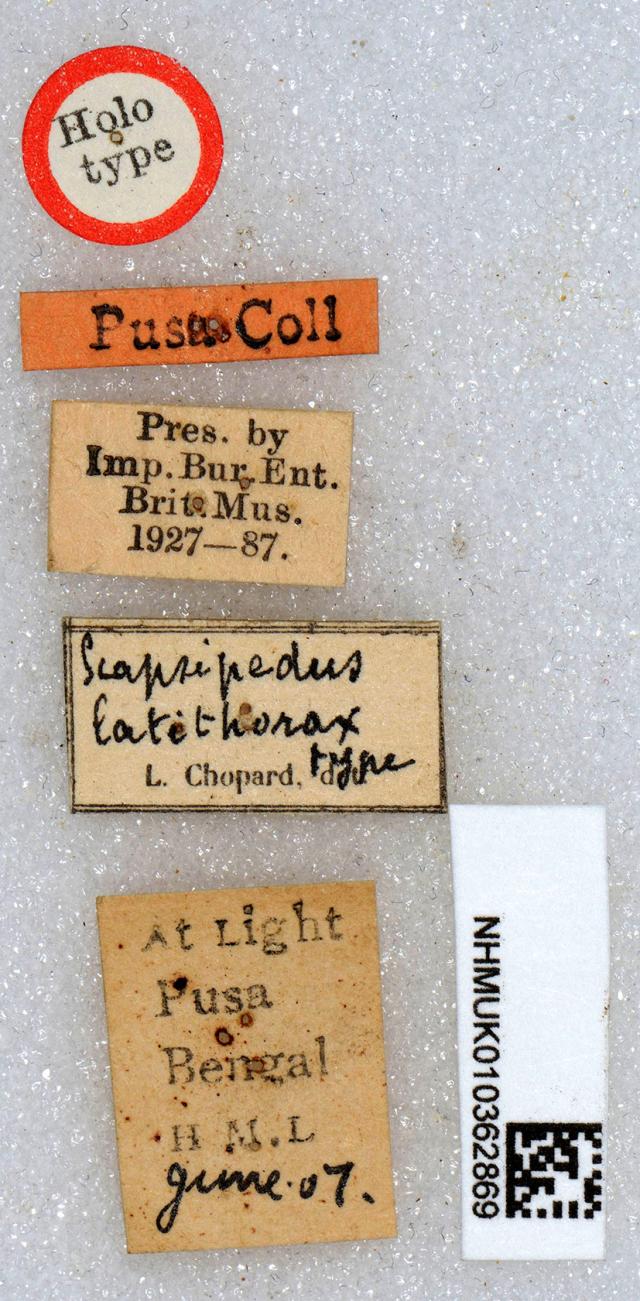 Holo
type
Pusa Coll
Pres. by
Imp. Bur. Ent.
Brit. Mus.
1927—87.
Scapsipedus
latithorax
type
L. Chopard, det
At Light
Pusa
Bengal
H M. L
June. 07.
NHMUK010362869